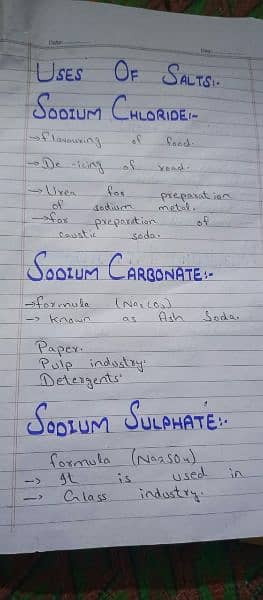 Date:
USES OF SALTS:-
SODIUM CHLORIDE:-
→ Flavouring of food.
→ De-icing of road.
→ Urea for preparation
of sodium metal.
→ for preparation of
caustic soda.
SODIUM CARBONATE:-
→ formula (Na2CO3)
→ known as Ash Soda.
Paper.
Pulp industry.
Detergents.
SODIUM SULPHATE:-
formula (Na2SO4)
→ It is used in
→ Glass industry.